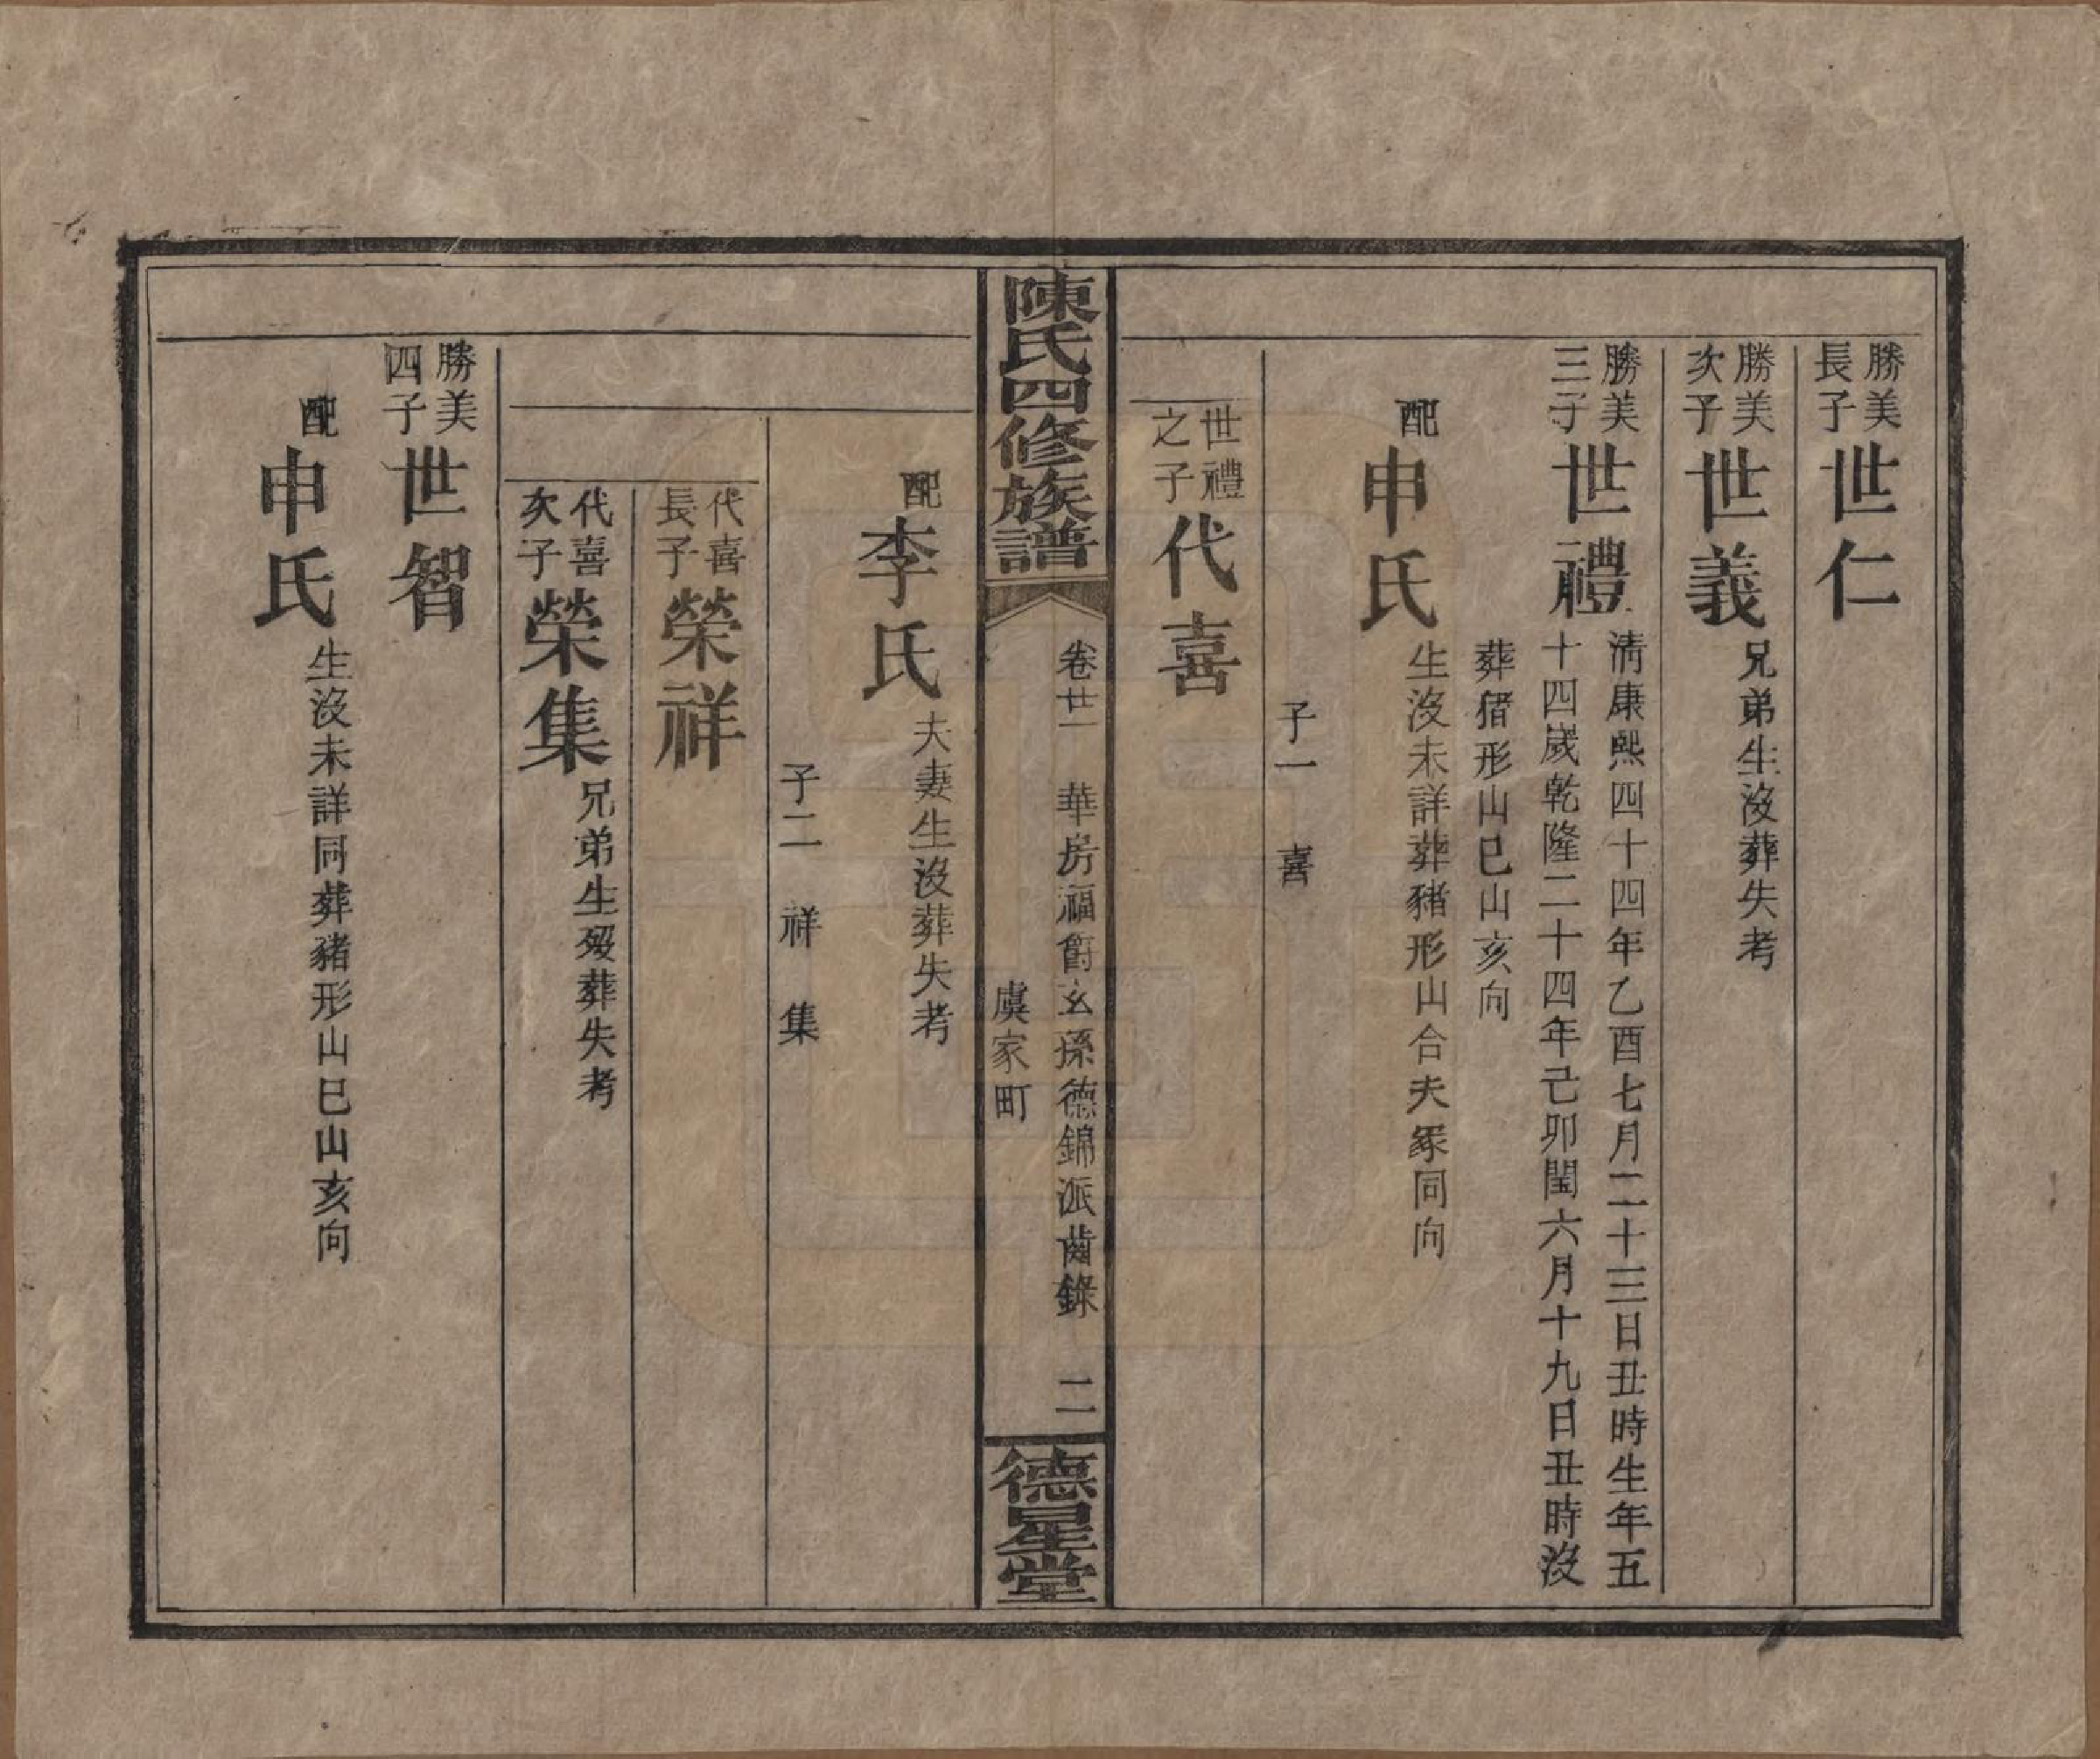 勝美
長子
世仁
勝美
次子
世義
兄弟生沒葬失考
勝美
三子
世禮
淸康熙四十四年乙酉七月二十三日丑時生年五
十四歲乾隆二十四年己卯閏六月十九日丑時沒
葬猪形山巳山亥向
配
申氏
生沒未詳葬豬形山合夫冢同向
子一 喜
世禮
之子
代喜
陳氏四修族譜
卷廿一 華房福爵玄孫德錦派齒錄 二
虞家町
德星堂
配
李氏
夫妻生沒葬失考
子二 祥 集
代喜
長子
榮祥
代喜
次子
榮集
兄弟生歿葬失考
勝美
四子
世智
配
申氏
生沒未詳同葬豬形山巳山亥向